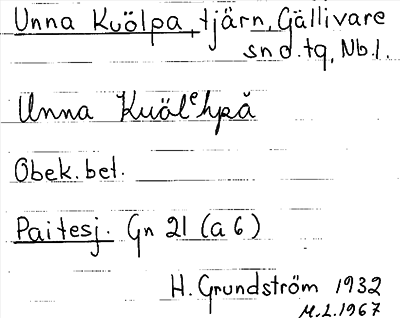 Unna Kuölpa, tjärn, Gällivare
sn o. tg, Nb. l.
Unna Kuälᵉhpå
Obek. bet.
Paitesj. Gn 21 (a 6)
H. Grundström 1932
M.L. 1967